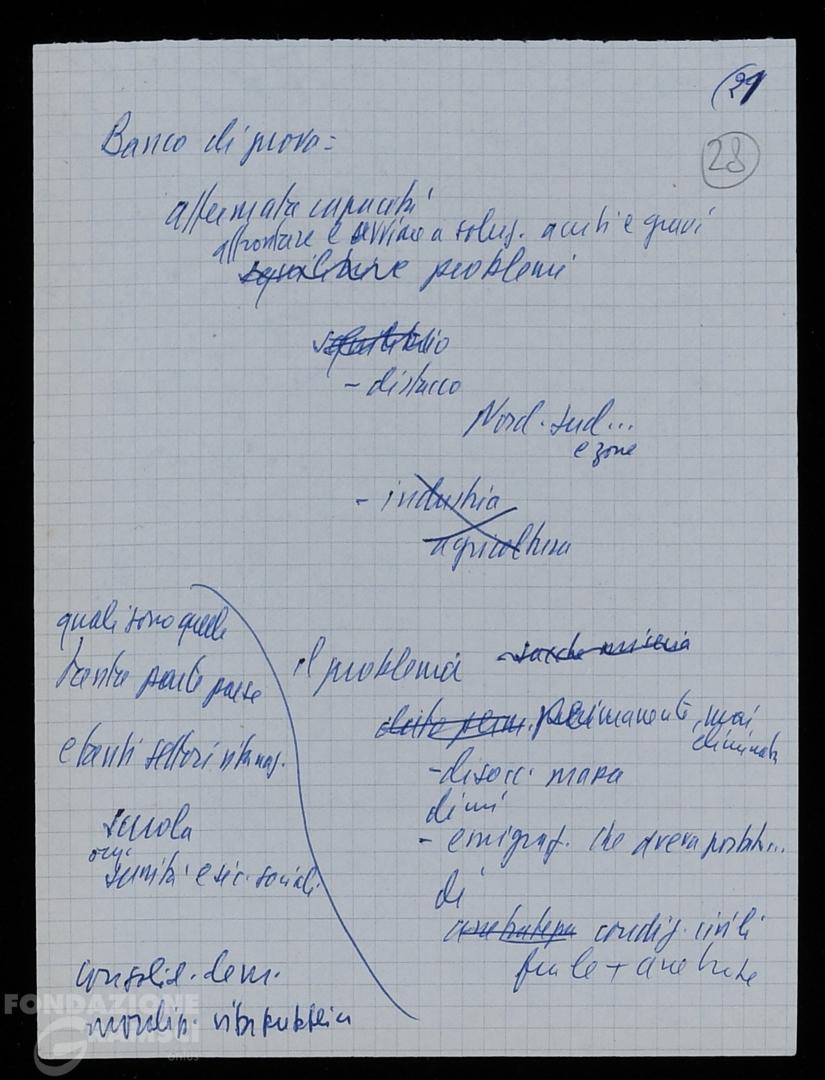 (29
28
Banco di prova =
affermata capacità
affrontare e avviare a soluz. acuti e gravi
squilibrare problemi
squilibrio
- distacco
Nord-sud...
e zone
- industria
agricoltura
quali sono quelle
tanta parte paese
e tanti settori vita naz.
scuola
sanità e sic. sociali.
consolid. dem.
moralizz. vita pubblica
il problema
- sacche miseria
permanente, mai
eliminata
- disocc. massa
di cui
- emigraz. che aveva portato...
di
arretratezza condiz. civili
fra le + arretrate
FONDAZIONE
GRAMSCI
onlus